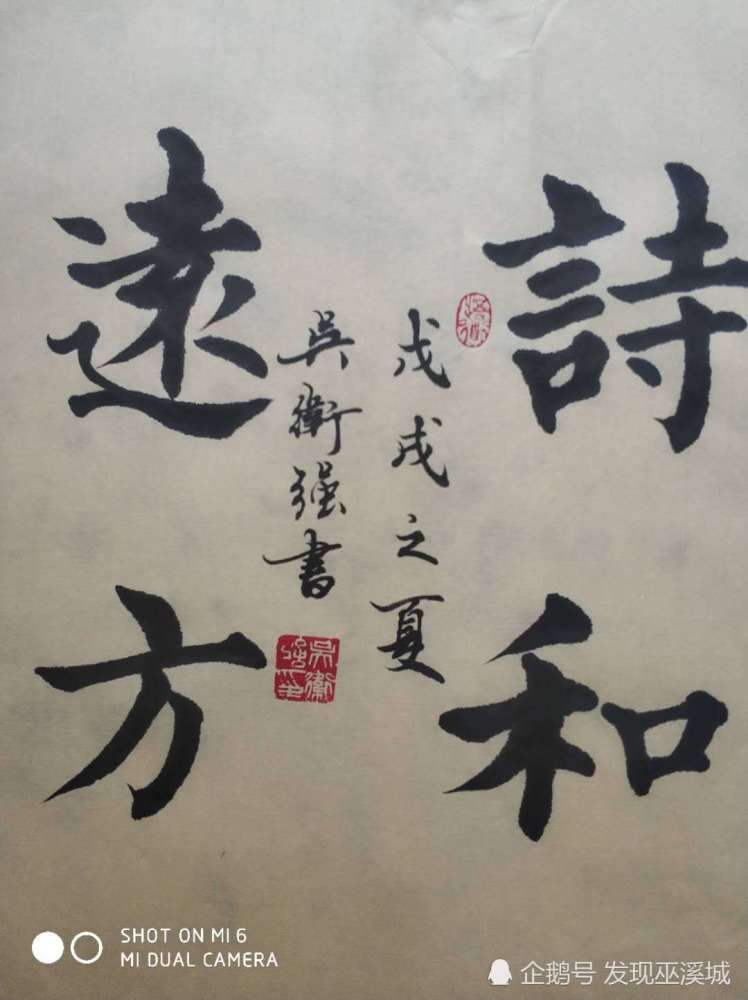 詩和
遠方
戊戌之夏
吳衛强書
SHOT ON MI 6
MI DUAL CAMERA
企鹅号 发现巫溪城